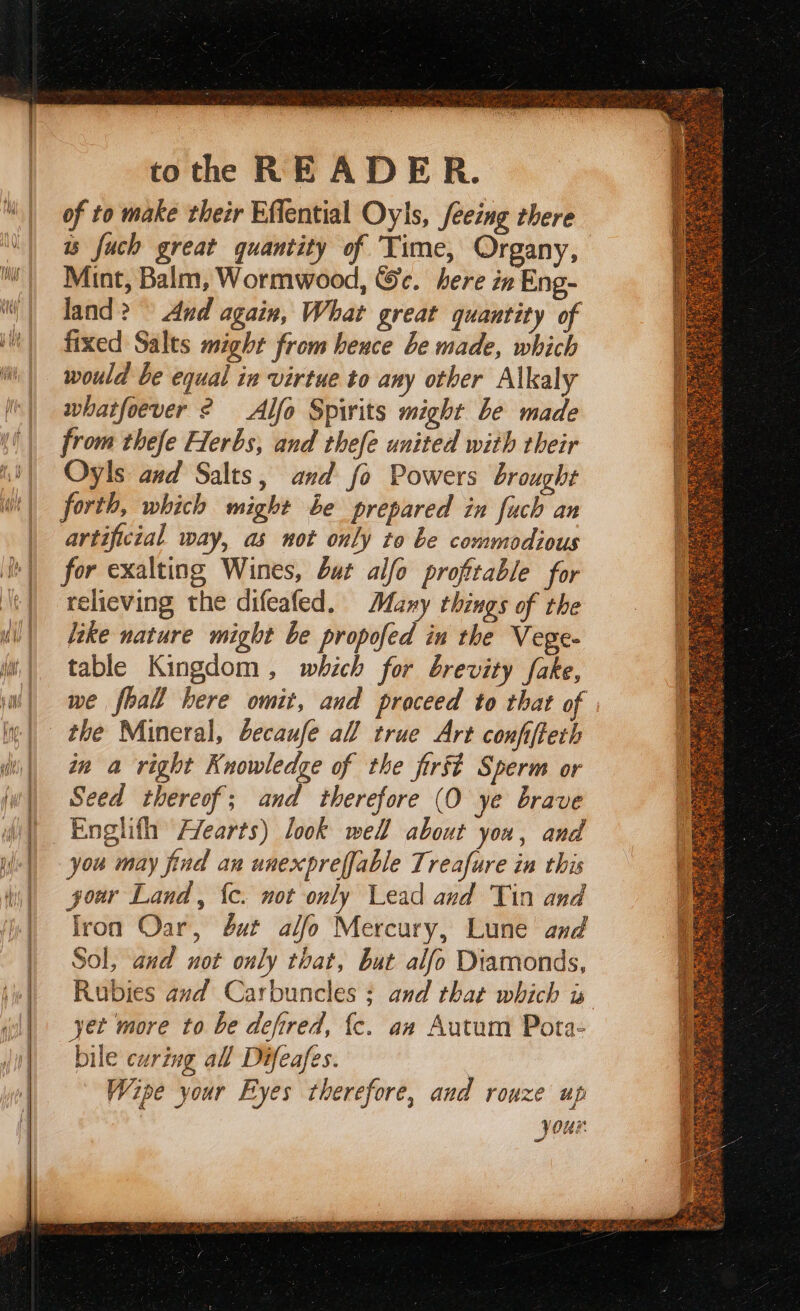 to the READER.
of to make their Eſſential Oyls, ſeeing there
is ſuch great quantity of Time, Organy,
Mint, Balm, Wormwood, &c. here in Eng-
land? And again, What great quantity of
fixed Salts might from hence be made, which
would be equal in virtue to any other Alkaly
whatſoever? Alſo Spirits might be made
from theſe Herbs, and theſe united with their
Oyls and Salts, and ſo Powers brought
forth, which might be prepared in ſuch an
artificial way, as not only to be commodious
for exalting Wines, but alſo profitable for
relieving the diſeaſed. Many things of the
like nature might be propoſed in the Vege-
table Kingdom, which for brevity ſake,
we ſhall here omit, and proceed to that of
the Mineral, becauſe all true Art conſiſteth
in a right Knowledge of the firſt Sperm or
Seed thereof; and therefore (O ye brave
Engliſh Hearts) look well about you, and
you may find an unexpreſſable Treaſure in this
your Land, ſc. not only Lead and Tin and
Iron Oar, but alſo Mercury, Lune and
Sol, and not only that, but alſo Diamonds,
Rubies and Carbuncles; and that which is
yet more to be deſired, ſc. an Autum Pota-
bile curing all Diſeaſes.
Wipe your Eyes therefore, and rouze up
your